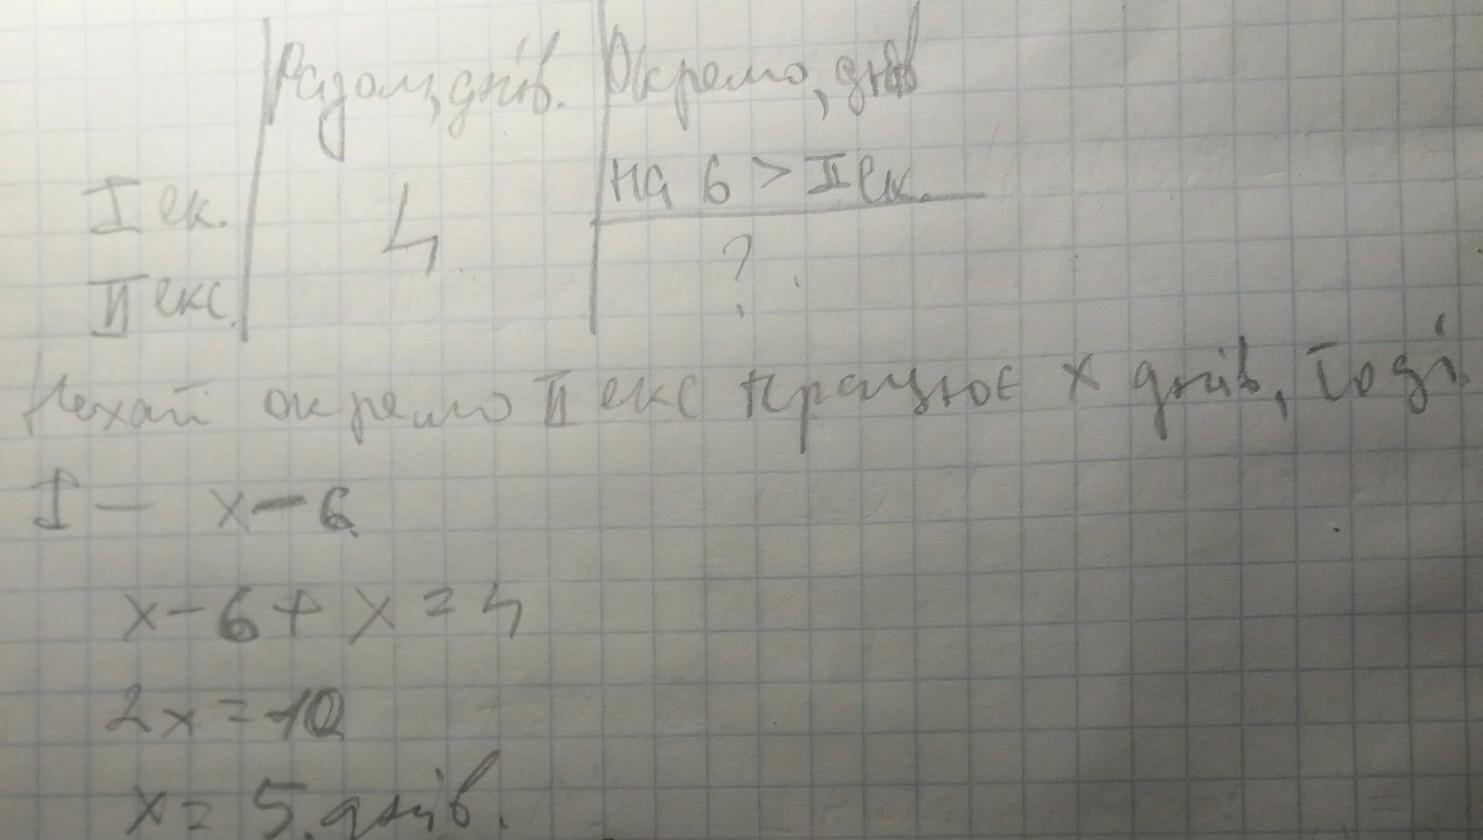 Разом, днів. Окремо, днів
I ек. 4 на 6 > II ек.
II екс. ?
Нехай окремо II екс працює x днів, тоді
I — x-6
x-6+x=4
2x=10
x=5 днів.